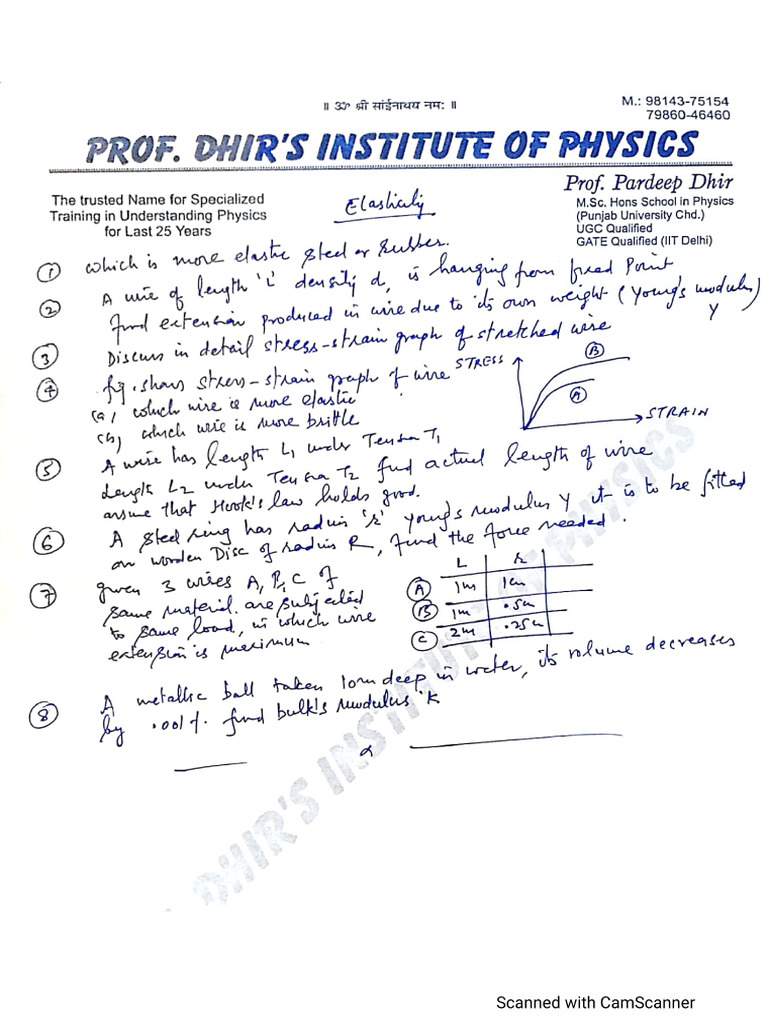 ॥ ॐ श्री सांईनाथय नमः ॥
M.: 98143-75154
79860-46460
PROF. DHIR'S INSTITUTE OF PHYSICS
The trusted Name for Specialized
Training in Understanding Physics
for Last 25 Years
Elasticity
Prof. Pardeep Dhir
M.Sc. Hons School in Physics
(Punjab University Chd.)
UGC Qualified
GATE Qualified (IIT Delhi)
① Which is more elastic steel or rubber.
② A wire of length 'L' density d, is hanging from fixed Point,
find extension produced in wire due to its own weight (Young's modulus)
Y
③ Discuss in detail stress-strain graph of stretched wire
④ fig. shows stress-strain graph of wire
(a) which wire is more elastic
(b) which wire is more brittle
STRESS
B
A
STRAIN
⑤ A wire has length L1 under Tension T1
Length L2 under Tension T2 find actual length of wire
assume that Hook's law holds good.
⑥ A steel ring has radius 'r' Young's modulus Y it is to be fitted
on wooden Disc of radius R, find the force needed.
⑦ given 3 wires A, B, C of
same material are subjected
to same load, in which wire
extension is maximum
L r
A 1m 1cm
B 1m .5cm
C 2m .25cm
⑧ A metallic ball taken 10m deep in water, its volume decreases
by .001%. find bulk's modulus 'K
DHIR'S INSTITUTE OF PHYSICS
Scanned with CamScanner